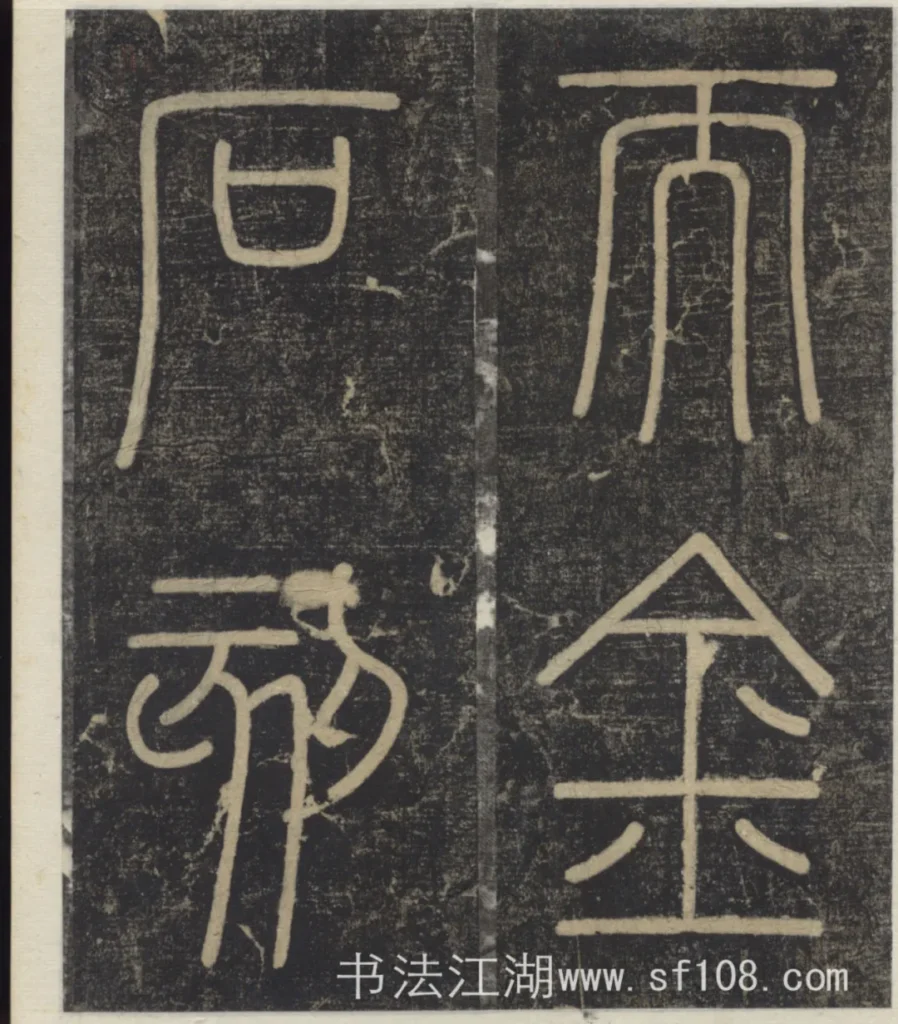 而金
石刻
书法江湖www.sf108.com